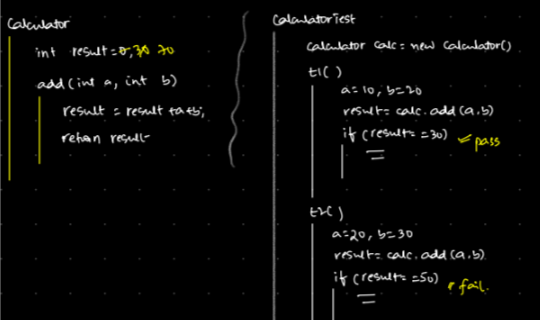 Calculator
int result=0,30 70
add(int a, int b)
result = result +a+b;
return result
CalculatorTest
Calculator calc = new Calculator()
t1( )
a=10, b=20
result= calc.add(a.b)
if (result= =30)
pass
t2( )
a=20, b=30
result= calc.add(a.b)
if (result= =50)
fail.